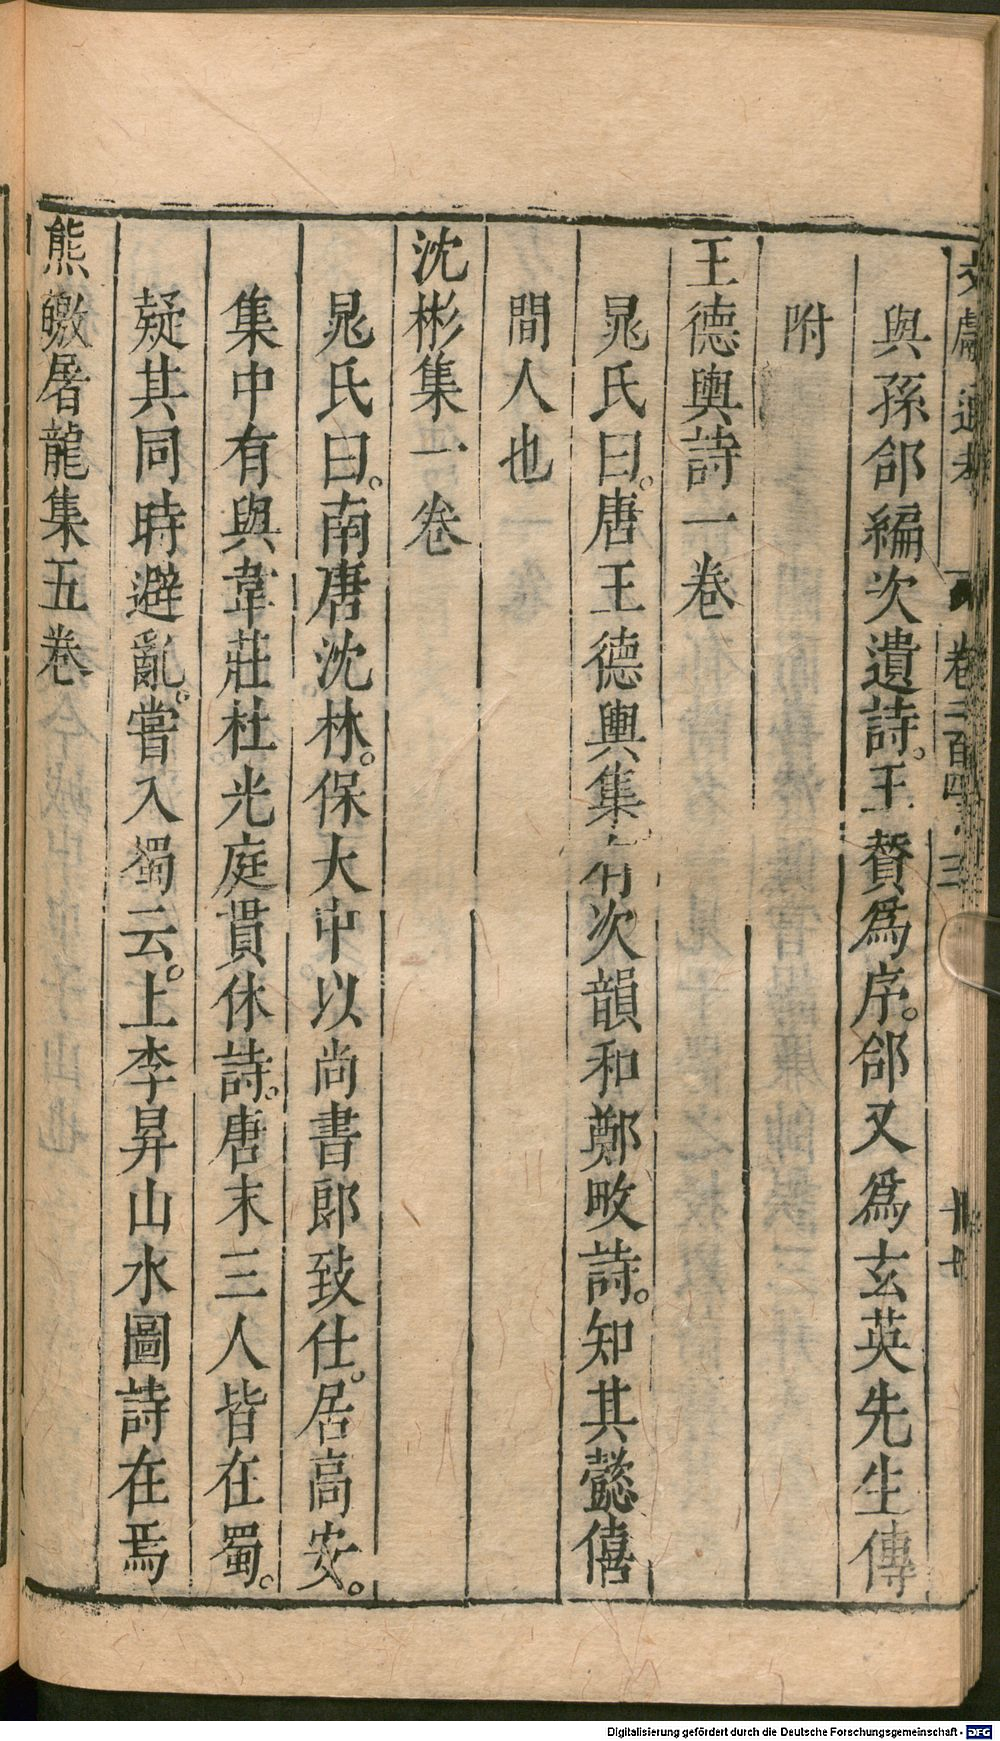 文獻通考 卷二百四十三 十七
與孫郃編次遺詩。王贊爲序。郃又爲玄英先生傳
附
王德輿詩一卷
晁氏曰。唐王德輿集有次韻和鄭畋詩。知其懿僖
間人也
沈彬集一卷
晁氏曰。南唐沈林。保大中以尚書郎致仕。居高安。
集中有與韋莊杜光庭貫休詩。唐末三人皆在蜀。
疑其同時避亂。嘗入蜀云。上李昪山水圖詩在焉
熊皦屠龍集五卷
Digitalisierung gefördert durch die Deutsche Forschungsgemeinschaft - DFG